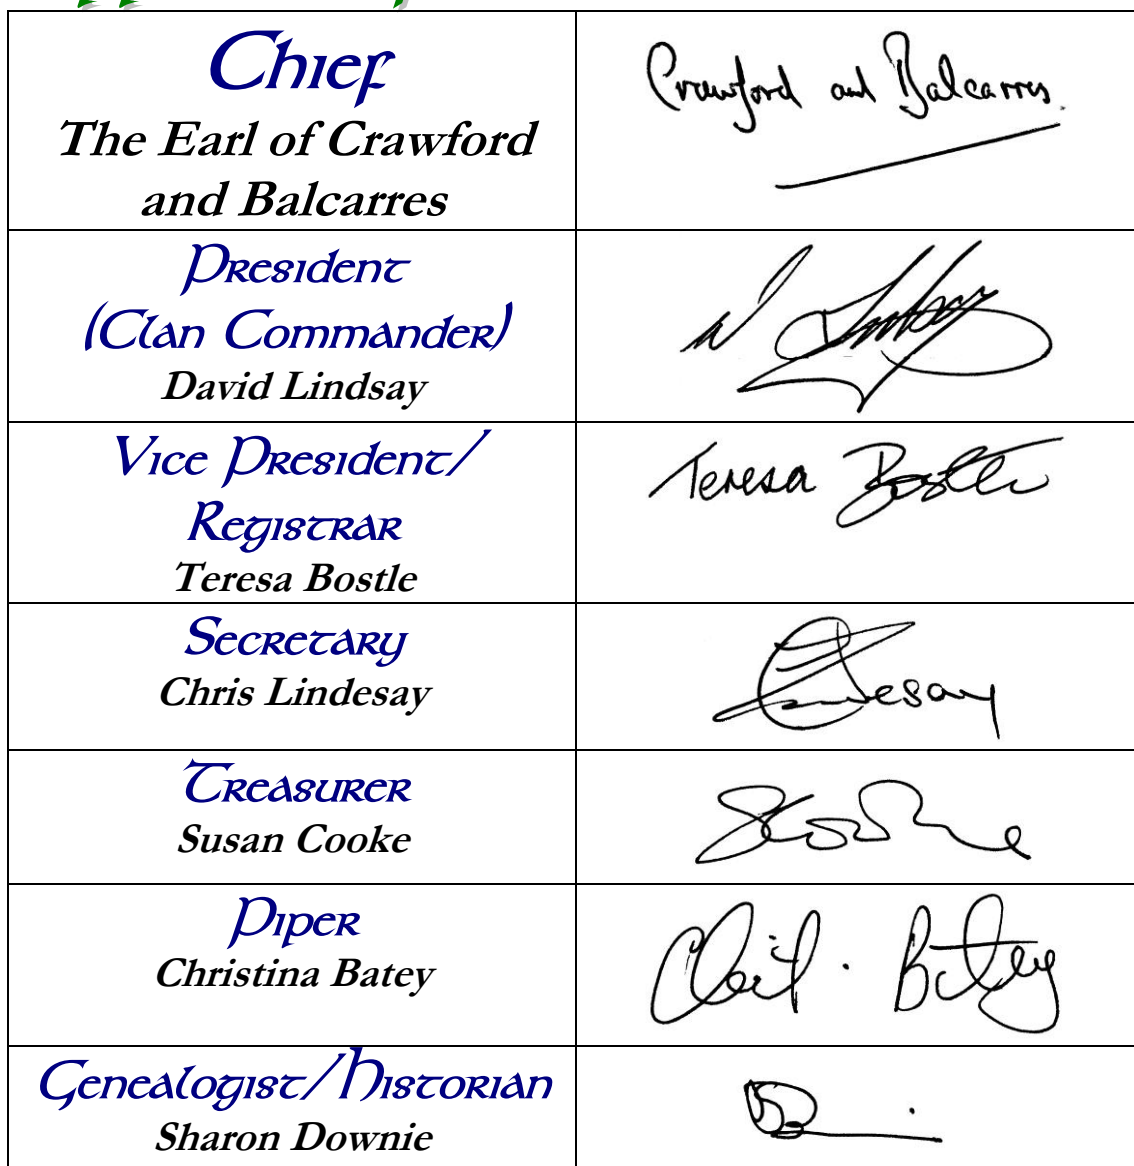 Chief
The Earl of Crawford
and Balcarres
Crawford and Balcarres
President
(Clan Commander)
David Lindsay
Vice President/
Registrar
Teresa Bostle
Teresa Bostle
Secretary
Chris Lindesay
Treasurer
Susan Cooke
Piper
Christina Batey
Batey
Genealogist/Historian
Sharon Downie